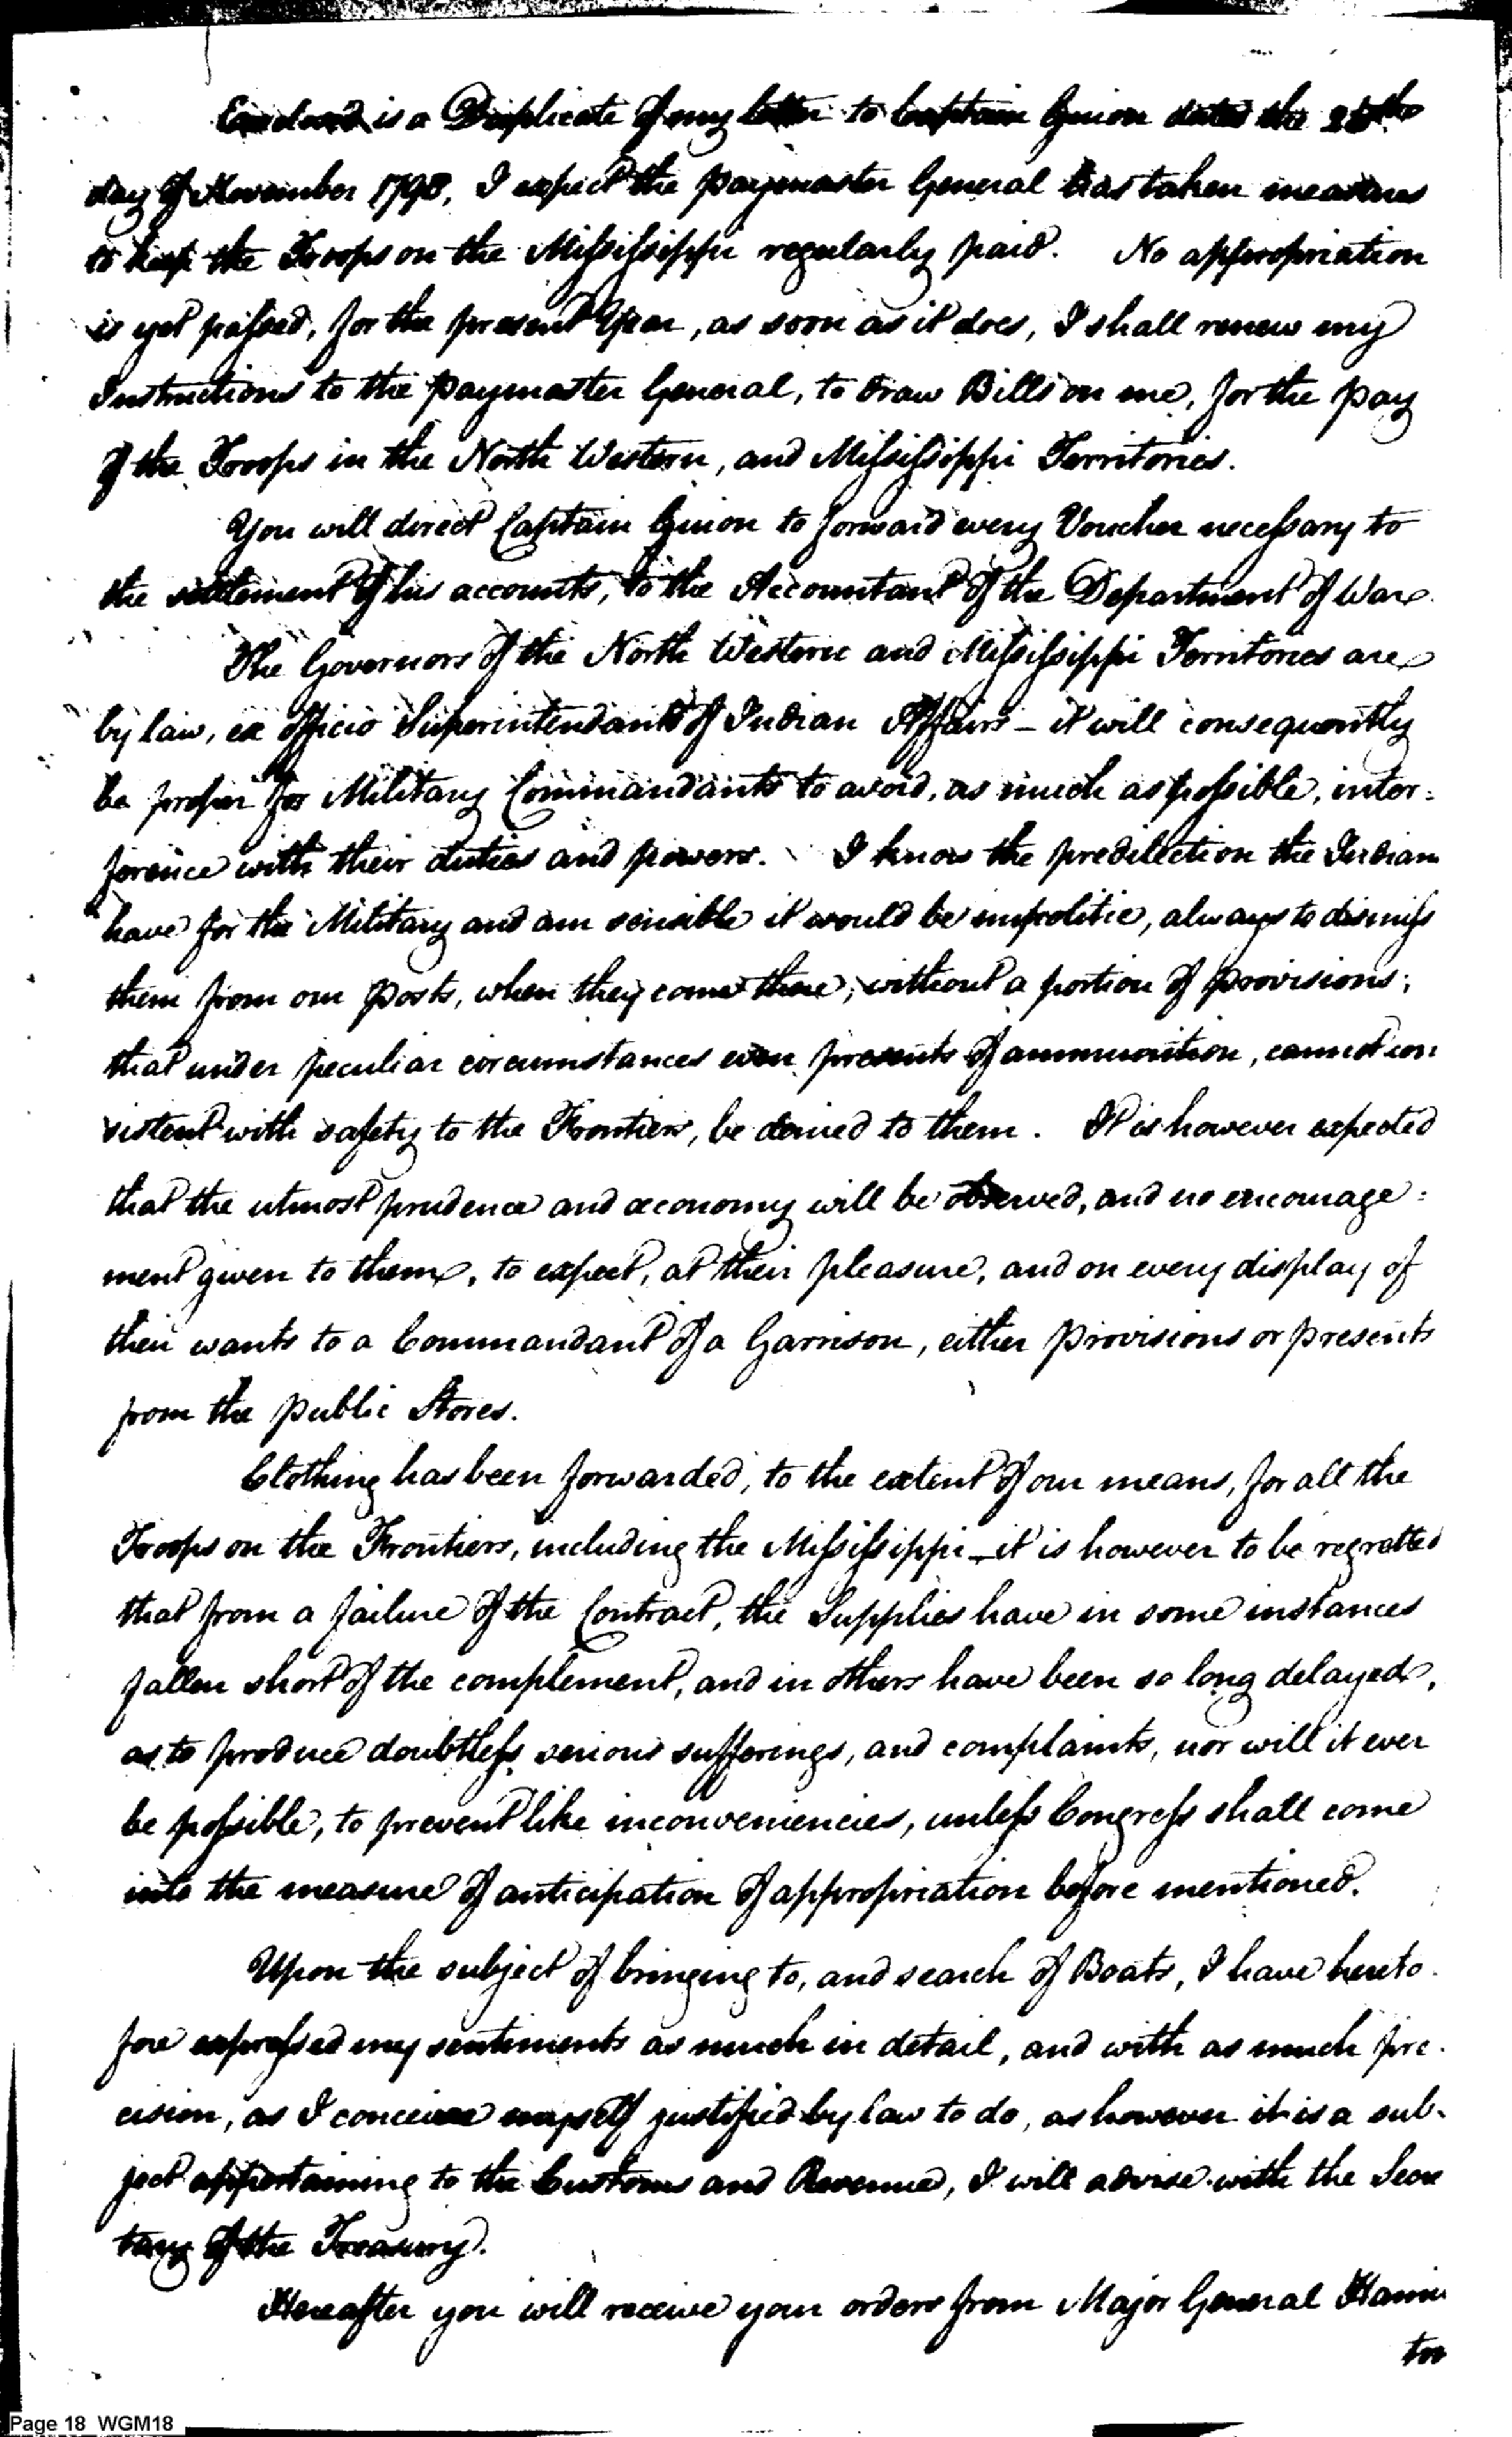 Enclosed is a Duplicate of my letter to Captain Guion dated the 28th
day of November 1798, I expect the paymaster General has taken measures
to keep the Troops on the Mississippi regularly paid. No appropriation
is yet passed, for the present Year, as soon as it does, I shall renew my
Instructions to the paymaster General, to draw Bills on me, for the pay
of the Troops in the North Western, and Mississippi Territories.
You will direct Captain Guion to forward every Voucher necessary to
the settlement of his accounts, to the Accountant of the Department of War.
The Governors of the North Western and Mississippi Territories are
by law, ex officio Superintendants of Indian Affairs - it will consequently
be proper for Military Commandants to avoid, as much as possible, inter=
ference with their duties and powers. I know the predilection the Indians
have for the Military and am sensible it would be impolitic, always to dismiss
them from our posts, when they come there, without a portion of provisions;
that under peculiar circumstances even presents of ammunition, cannot con
sistent with safety to the Frontiers, be denied to them. It is however expected
that the utmost prudence and œconomy will be observed, and no encourage=
ment given to them, to expect, at their pleasure, and on every display of
their wants to a Commandant of a Garrison, either provisions or presents
from the public Stores.
Clothing has been forwarded, to the extent of our means, for all the
Troops on the Frontiers, including the Mississippi - it is however to be regretted
that from a failure of the Contract, the Supplies have in some instances
fallen short of the complement, and in others have been so long delayed,
as to produce doubtless serious sufferings, and complaints, nor will it ever
be possible, to prevent like inconveniencies, unless Congress shall come
into the measure of anticipation of appropriation before mentioned.
Upon the subject of bringing to, and search of Boats, I have hereto-
fore expressed my sentiments as much in detail, and with as much pre-
cision, as I conceive myself justified by law to do, as however it is a sub-
ject appertaining to the Customs and Revenue, I will advise with the Secre
tary of the Treasury.
Hereafter you will receive your orders from Major General Hamil
ton
Page 18 WGM18